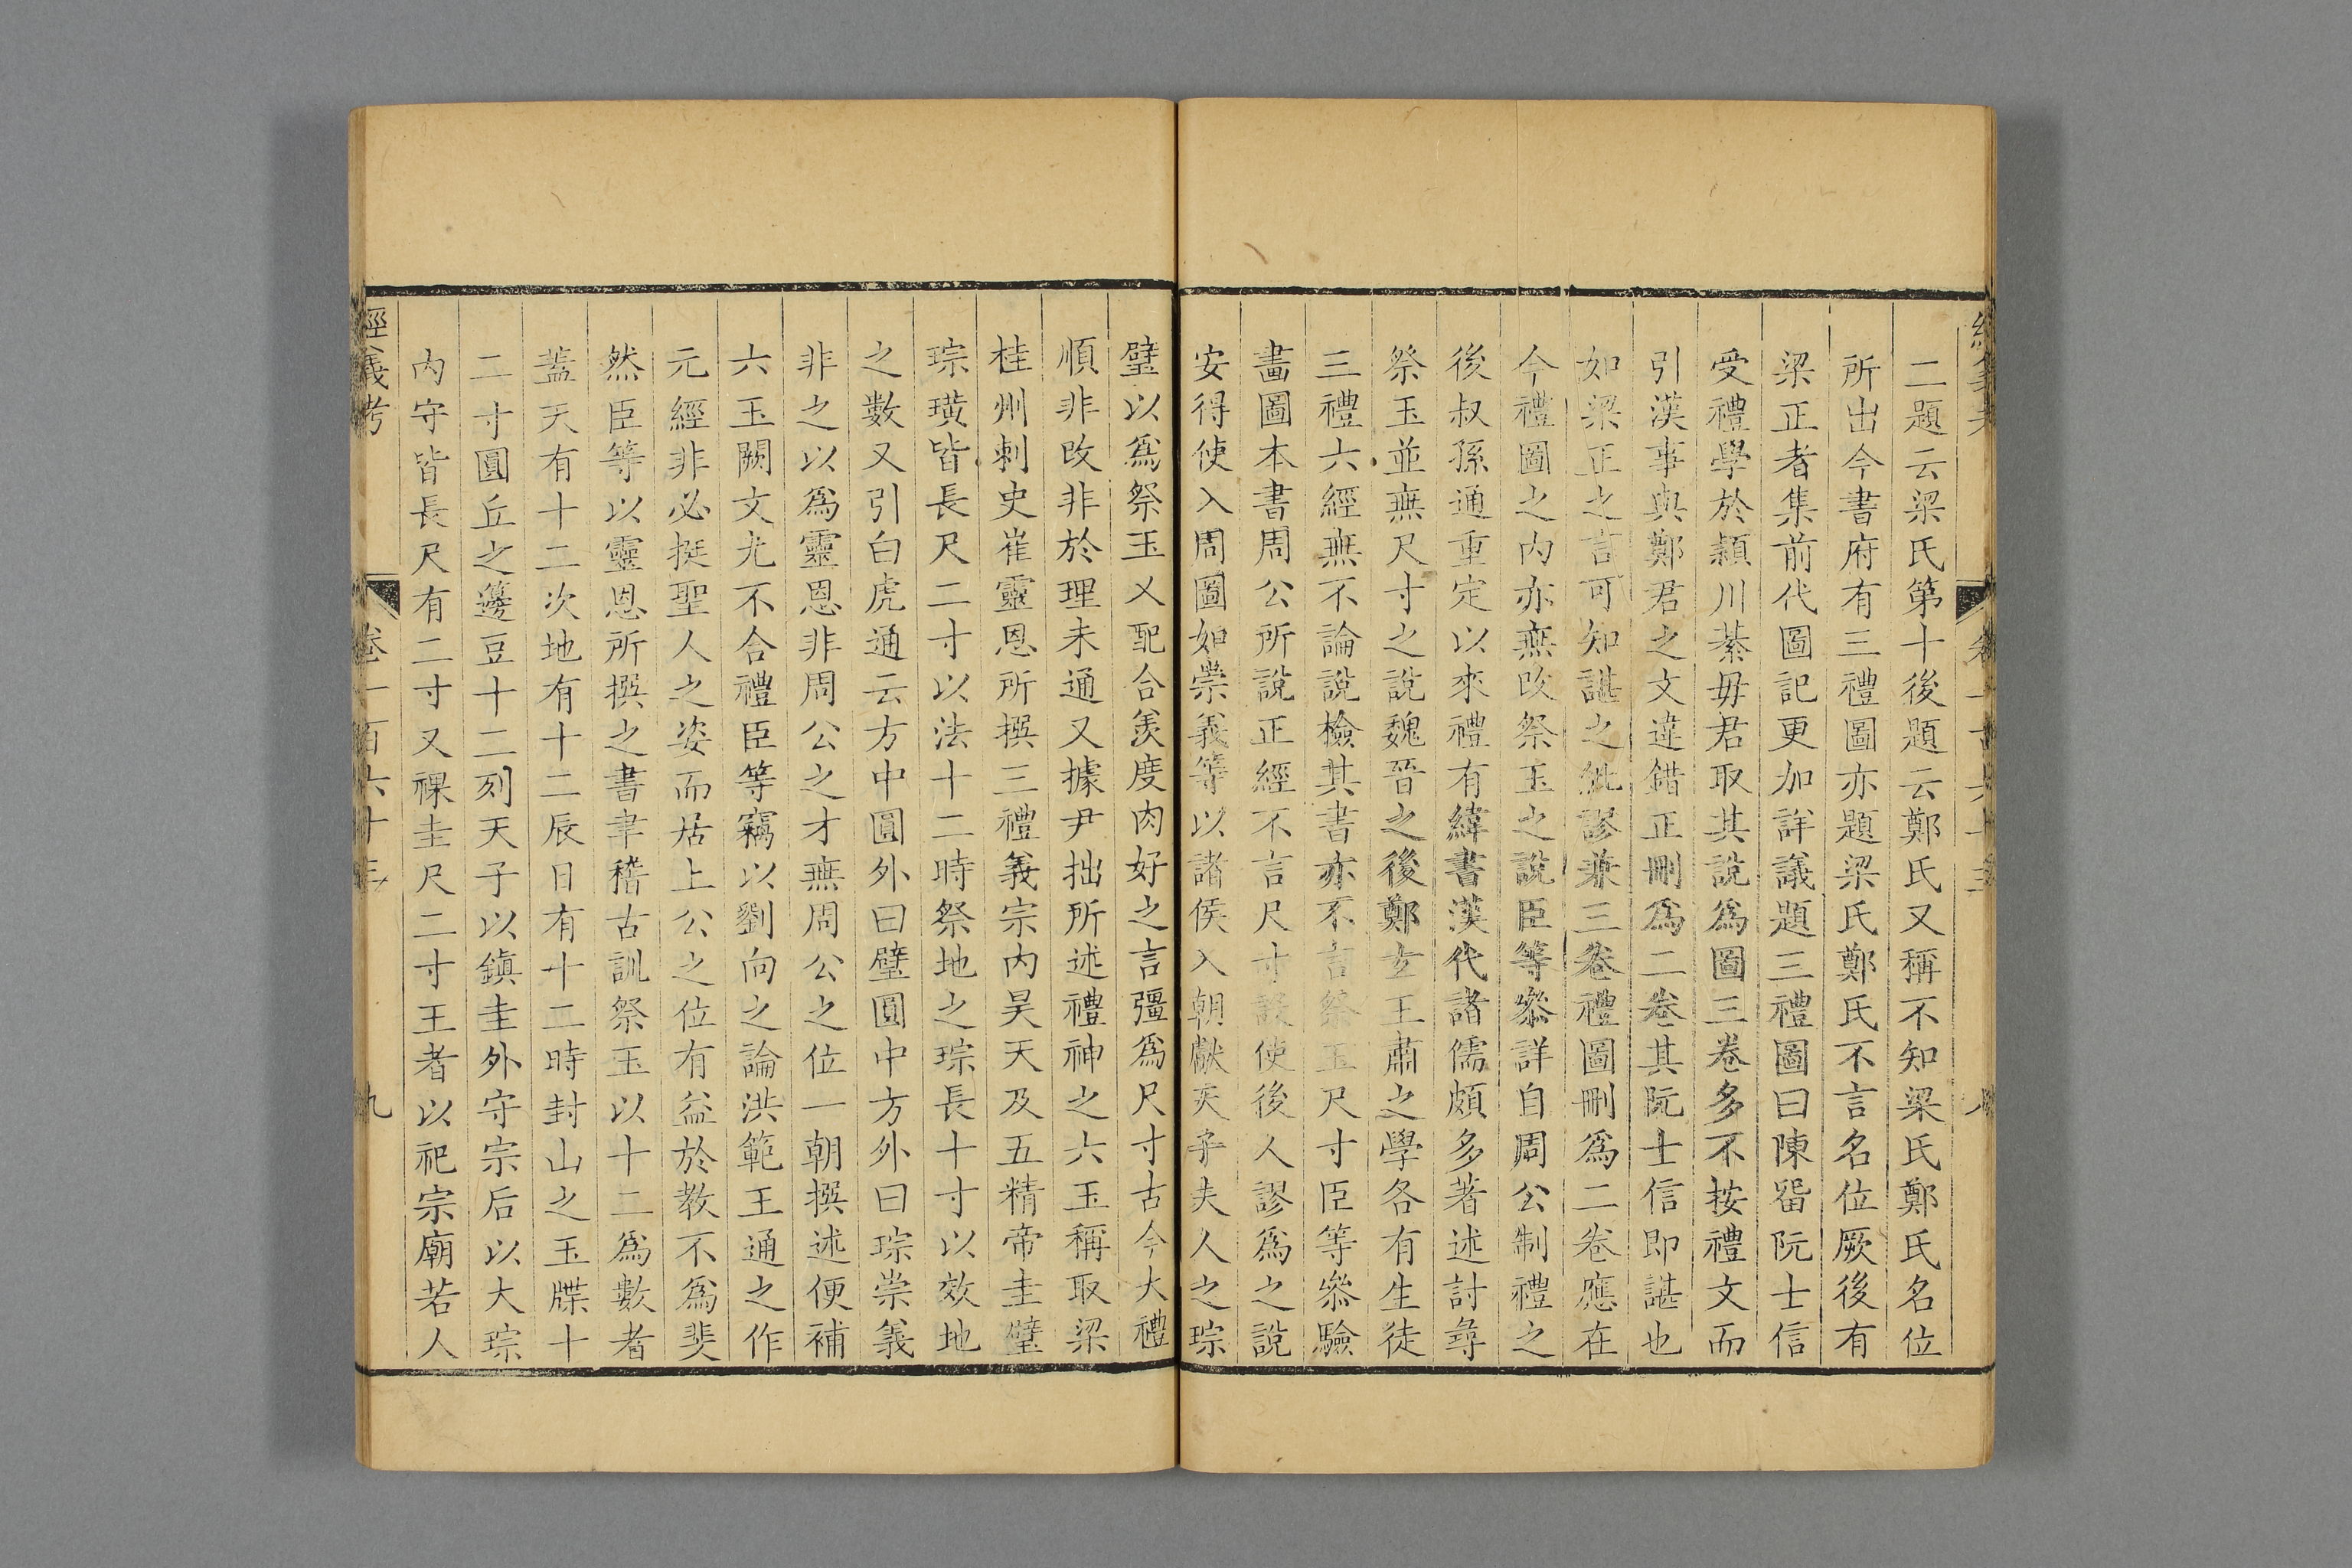 二題云梁氏第十後題云鄭氏又稱不知梁氏鄭氏名位
所出今書府有三禮圖亦題梁氏鄭氏不言名位厥後有
梁正者集前代圖記更加詳議題三禮圖曰陳畱阮士信
受禮學於潁川綦毋君取其說爲圖三卷多不按禮文而
引漢事與鄭君之文違錯正刪爲二卷其阮士信即諶也
如梁正之言可知諶之紕謬兼三卷禮圖刪爲二卷應在
今禮圖之內亦無改祭玉之說臣等叅詳自周公制禮之
後叔孫通重定以來禮有緯書漢代諸儒頗多著述討尋
祭玉並無尺寸之說魏晉之後鄭玄王肅之學各有生徒
三禮六經無不論說檢其書亦不言祭玉尺寸臣等叅驗
畫圖本書周公所說正經不言尺寸設使後人謬爲之說
安得使入周圖如崇義等以諸侯入朝獻天子夫人之琮
璧以爲祭玉又配合羨度肉好之言彊爲尺寸古今大禮
順非改非於理未通又據尹拙所述禮神之六玉稱取梁
桂州刺史崔靈恩所撰三禮義宗內昊天及五精帝圭璧
琮璜皆長尺二寸以法十二時祭地之琮長十寸以效地
之數又引白虎通云方中圓外曰璧圓中方外曰琮崇義
非之以爲靈恩非周公之才無周公之位一朝撰述便補
六玉闕文尤不合禮臣等竊以劉向之論洪範王通之作
元經非必挺聖人之姿而居上公之位有益於教不爲斐
然臣等以靈恩所撰之書聿稽古訓祭玉以十二爲數者
蓋天有十二次地有十二辰日有十二時封山之玉牒十
二寸圓丘之籩豆十二列天子以鎮圭外守宗后以大琮
內守皆長尺有二寸又祼圭尺二寸王者以祀宗廟若人
經義考 卷一百六十三 九